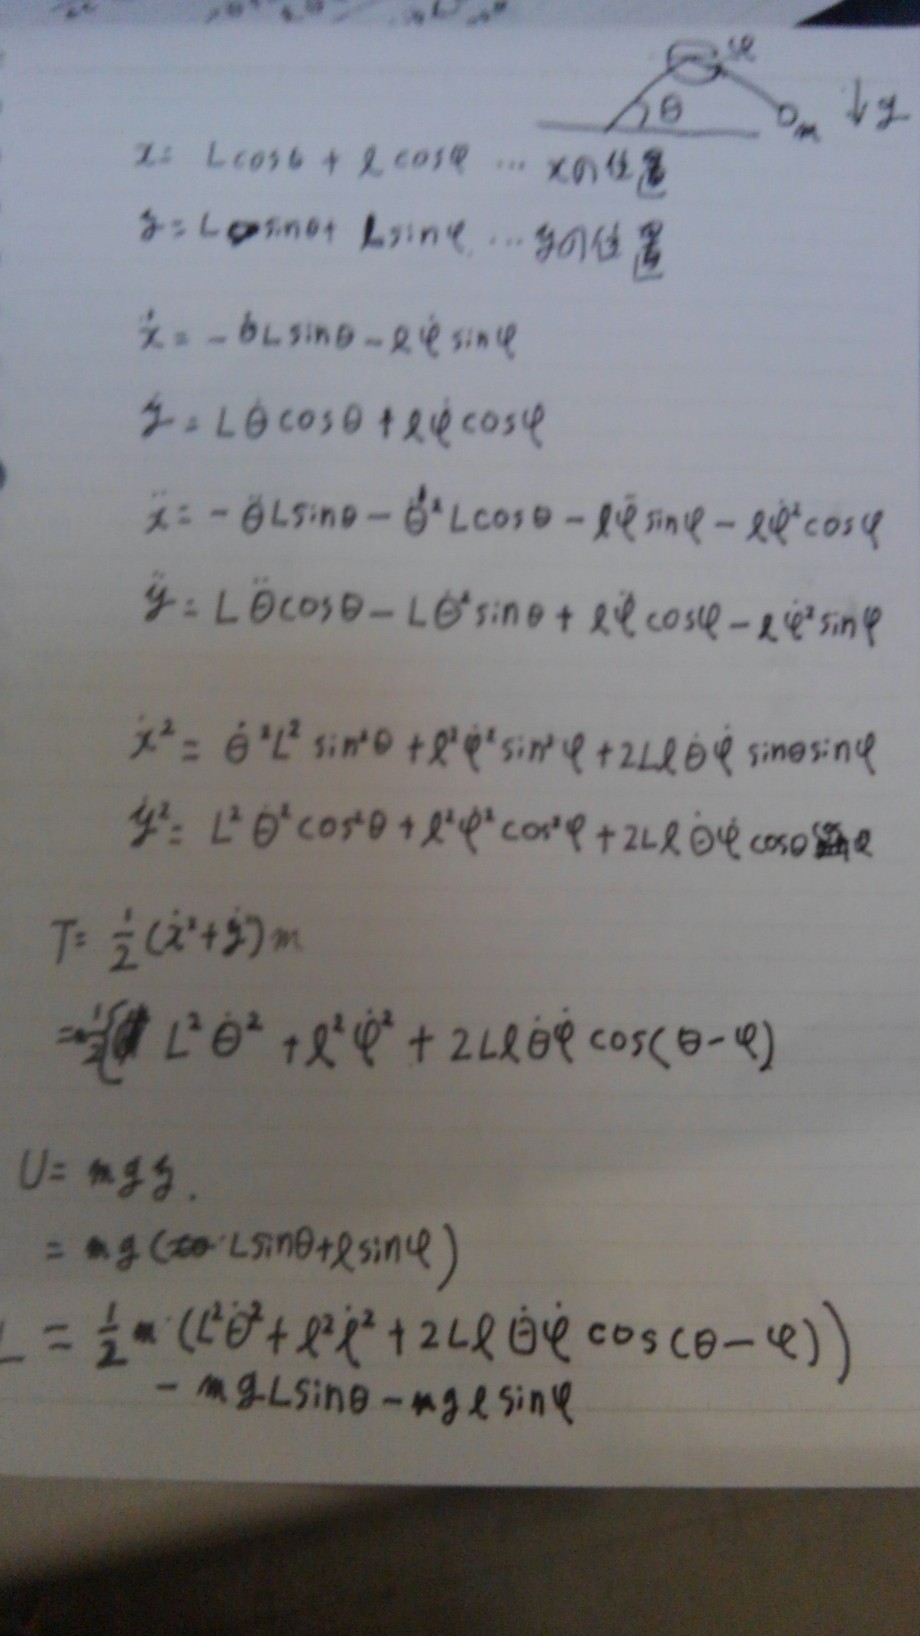 φ
θ
m
↓g
x = Lcosθ + lcosφ … xの位置
y = Lsinθ + lsinφ … yの位置
ẋ = -θ̇Lsinθ - lφ̇sinφ
ẏ = Lθ̇cosθ + lφ̇cosφ
ẍ = -θ̈Lsinθ - θ̇²Lcosθ - lφ̈sinφ - lφ̇²cosφ
ÿ = Lθ̈cosθ - Lθ̇²sinθ + lφ̈cosφ - lφ̇²sinφ
ẋ² = θ̇²L²sin²θ + l²φ̇²sin²φ + 2Llθ̇φ̇ sinθsinφ
ẏ² = L²θ̇²cos²θ + l²φ̇²cos²φ + 2Llθ̇φ̇ cosθcosφ
T = 1/2(ẋ²+ẏ²)m
= 1/2{L²θ̇² + l²φ̇² + 2Llθ̇φ̇ cos(θ-φ)
U = mgy.
= mg(Lsinθ+lsinφ)
L = 1/2 m(L²θ̇² + l²l̇² + 2Llθ̇φ̇ cos(θ-φ))
- mgLsinθ - mglsinφ